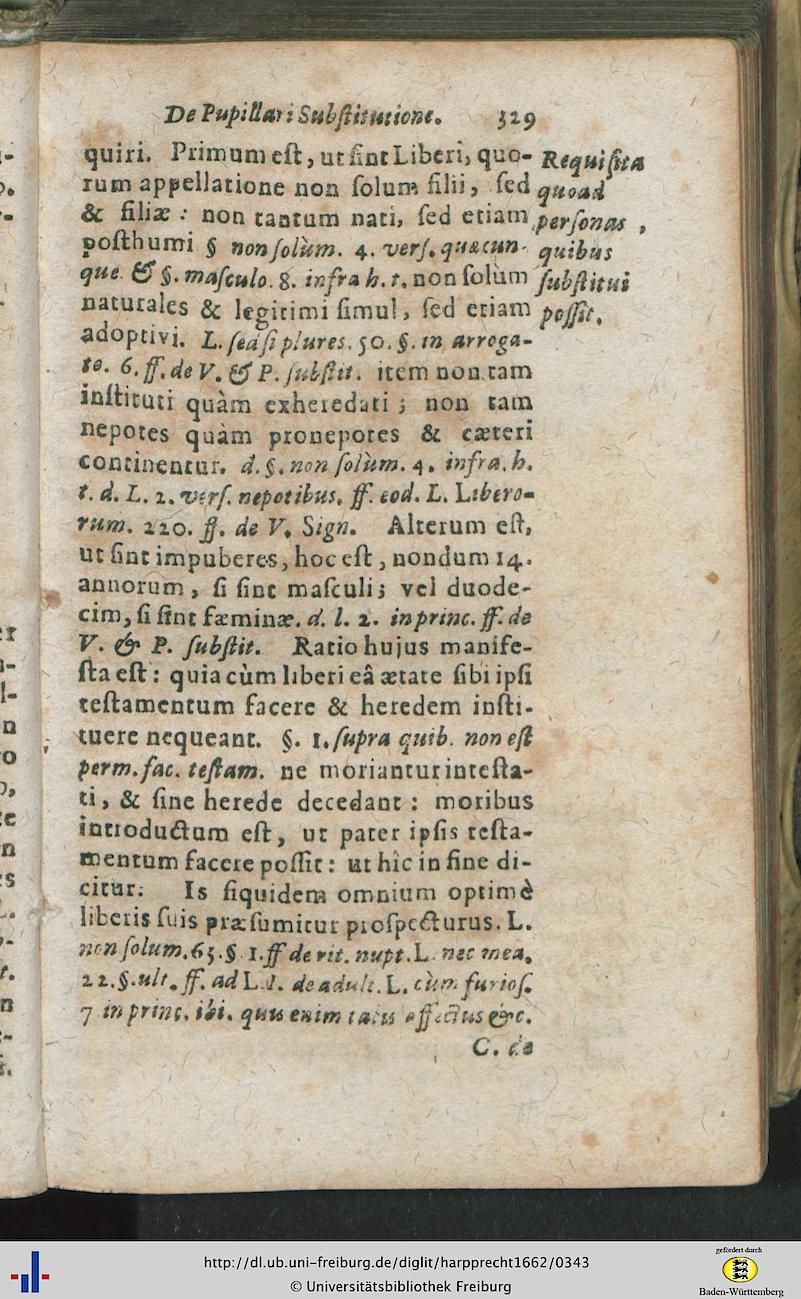 De Pupillari Substitutione. 329
quiri. Primum est, ut sint Liberi, quo-
rum appellatione non solum filii, sed
& filiæ : non tantum nati, sed etiam
posthumi § non solùm. 4. vers. quæcun-
que & §. masculo. 8. infra h. t. non solùm
naturales & legitimi simul, sed etiam
adoptivi. L. sed si plures. 50. §. in arroga-
to. 6. ff. de V. & P. substit. item non tam
instituti quàm exheredati ; non tam
nepotes quàm pronepotes & cæteri
continentur. d. §. non solùm. 4. infra. h.
t. d. L. 2. vers. nepotibus. ff. eod. L. Libero-
rum. 220. ff. de V. Sign. Alterum est,
ut sint impuberes, hoc est, nondum 14.
annorum, si sint masculi; vel duode-
cim, si sint fæminæ. d. l. 2. in princ. ff. de
V. & P. substit. Ratio hujus manife-
sta est : quia cùm liberi eâ ætate sibi ipsi
testamentum facere & heredem insti-
tuere nequeant. §. 1. supra quib. non est
perm. fac. testam. ne moriantur intesta-
ti, & sine herede decedant : moribus
introductum est, ut pater ipsis testa-
mentum facere possit : ut hîc in fine di-
citur. Is siquidem omnium optimè
liberis suis præsumitur prospecturus. L.
non solum. 65. § 1. ff de rit. nupt. L. nec mea.
22. §. ult. ff. ad L. I. de adult. L. cùm furios.
7 in princ. ibi. quis enim talis affectus &c.
C. de
Requisita
quoad
personas,
quibus
substitui
possit.
http://dl.ub.uni-freiburg.de/diglit/harpprecht1662/0343
© Universitätsbibliothek Freiburg
gefördert durch
Baden-Württemberg